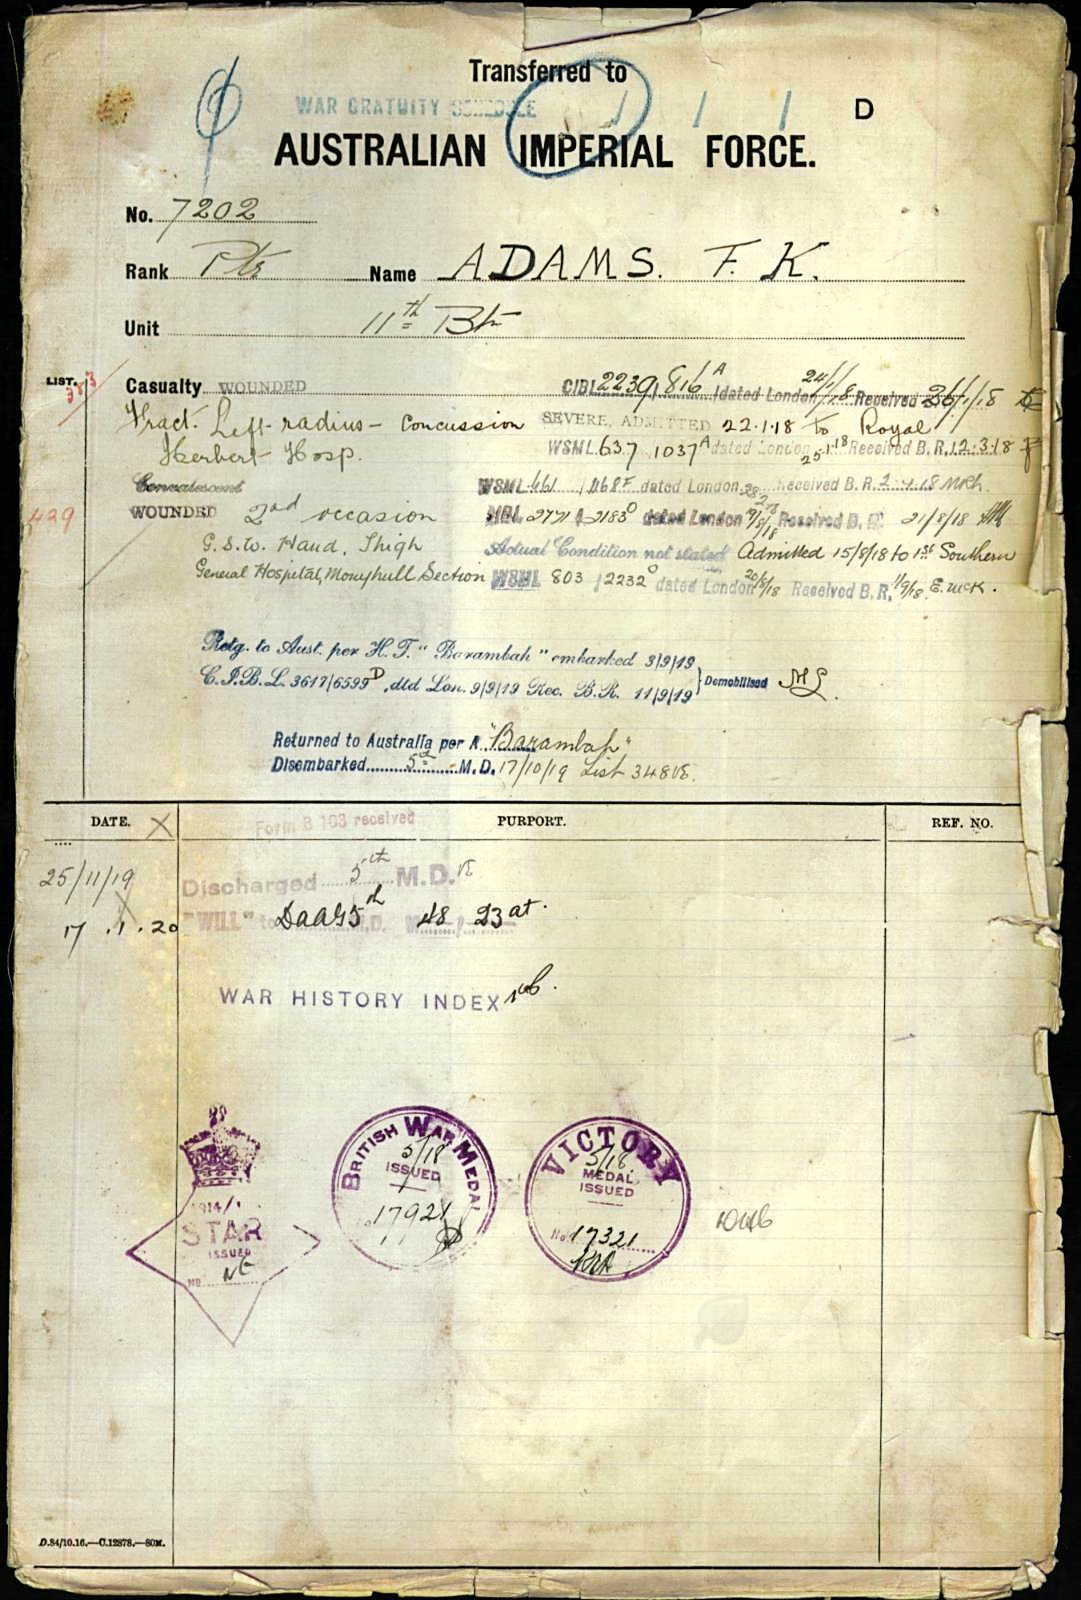 Transferred to
WAR GRATUITY SCHEDULE
D
AUSTRALIAN IMPERIAL FORCE.
No. 7202
Rank Pte Name ADAMS. F. K.
Unit 11th Bn
LIST. 383
Casualty WOUNDED CIBL 2239 / 816 A dated London 24/1/18 Received 26/1/18
Fract. Left radius - Concussion SEVERE, ADMITTED 22.1.18 to Royal
Herbert Hosp. WSML 637 1037A dated London 25.1.18 Received B.R. 12.3.18
Convalescent WSML 461 /468F dated London Received B.R.
429 WOUNDED 2nd occasion dated London Received B.R. 21/8/18
G.S.W. Hand, Thigh Actual Condition not stated Admitted 15/8/18 to 1st Southern
General Hospital, Monyhull Section WSML 803 / 2232 dated London 20/8/18 Received B.R. 1/9/18. E. McK.
Retg. to Aust. per H.T. "Barambah" embarked 3/9/19
C.I.B.L. 3617/6599D, dtd Lon. 9/9/19 Rec. B.R. 11/9/19 } Demobilised
Returned to Australia per A "Barambah"
Disembarked 5th M.D. 17/10/19 List 348
DATE. X PURPORT. REF. NO.
Form B 103 received
25/11/19 Discharged 5th M.D.
17.1.20 "WILL" to DAAG5d M.D. 48 23at.
WAR HISTORY INDEX
BRITISH WAR MEDAL
5/18
ISSUED
17921
VICTORY
5/18
MEDAL
ISSUED
No 17321
1914/1
STAR
ISSUED
No NE
D.84/10.16.—C.12878.—80M.